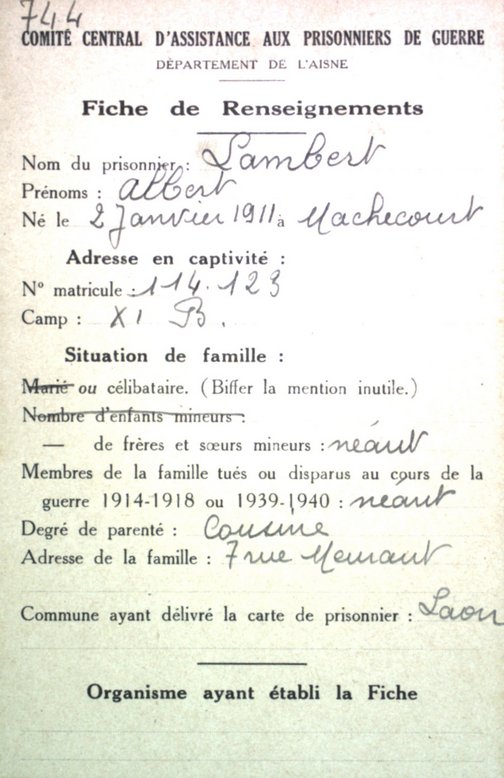 744
COMITÉ CENTRAL D'ASSISTANCE AUX PRISONNIERS DE GUERRE
DÉPARTEMENT DE L'AISNE
Fiche de Renseignements
Nom du prisonnier : Lambert
Prénoms : Albert
Né le 2 Janvier 1911 à Machecourt
Adresse en captivité :
N° matricule : 114.123
Camp : XI B.
Situation de famille :
Marié ou célibataire. (Biffer la mention inutile.)
Nombre d'enfants mineurs :
— de frères et sœurs mineurs : néant
Membres de la famille tués ou disparus au cours de la
guerre 1914-1918 ou 1939-1940 : néant
Degré de parenté : Cousine
Adresse de la famille : 7 rue
Commune ayant délivré la carte de prisonnier : Laon
Organisme ayant établi la Fiche